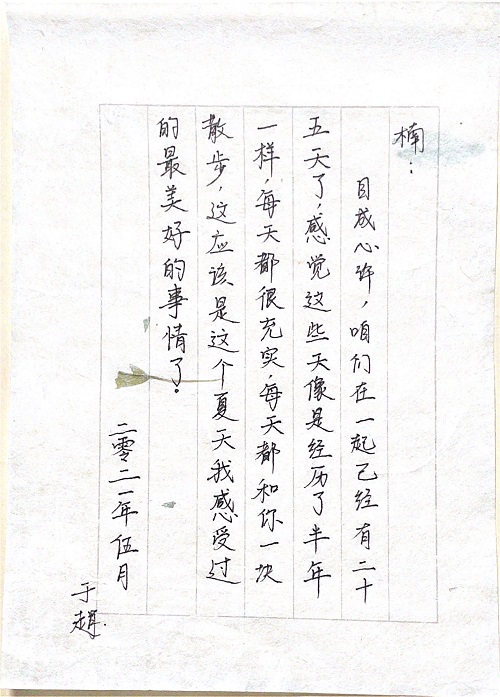 楠：
目成心许，咱们在一起已经有二十
五天了，感觉这些天像是经历了半年
一样，每天都很充实，每天都和你一块
散步，这应该是这个夏天我感受过
的最美好的事情了。
二零二一年伍月
于赵.